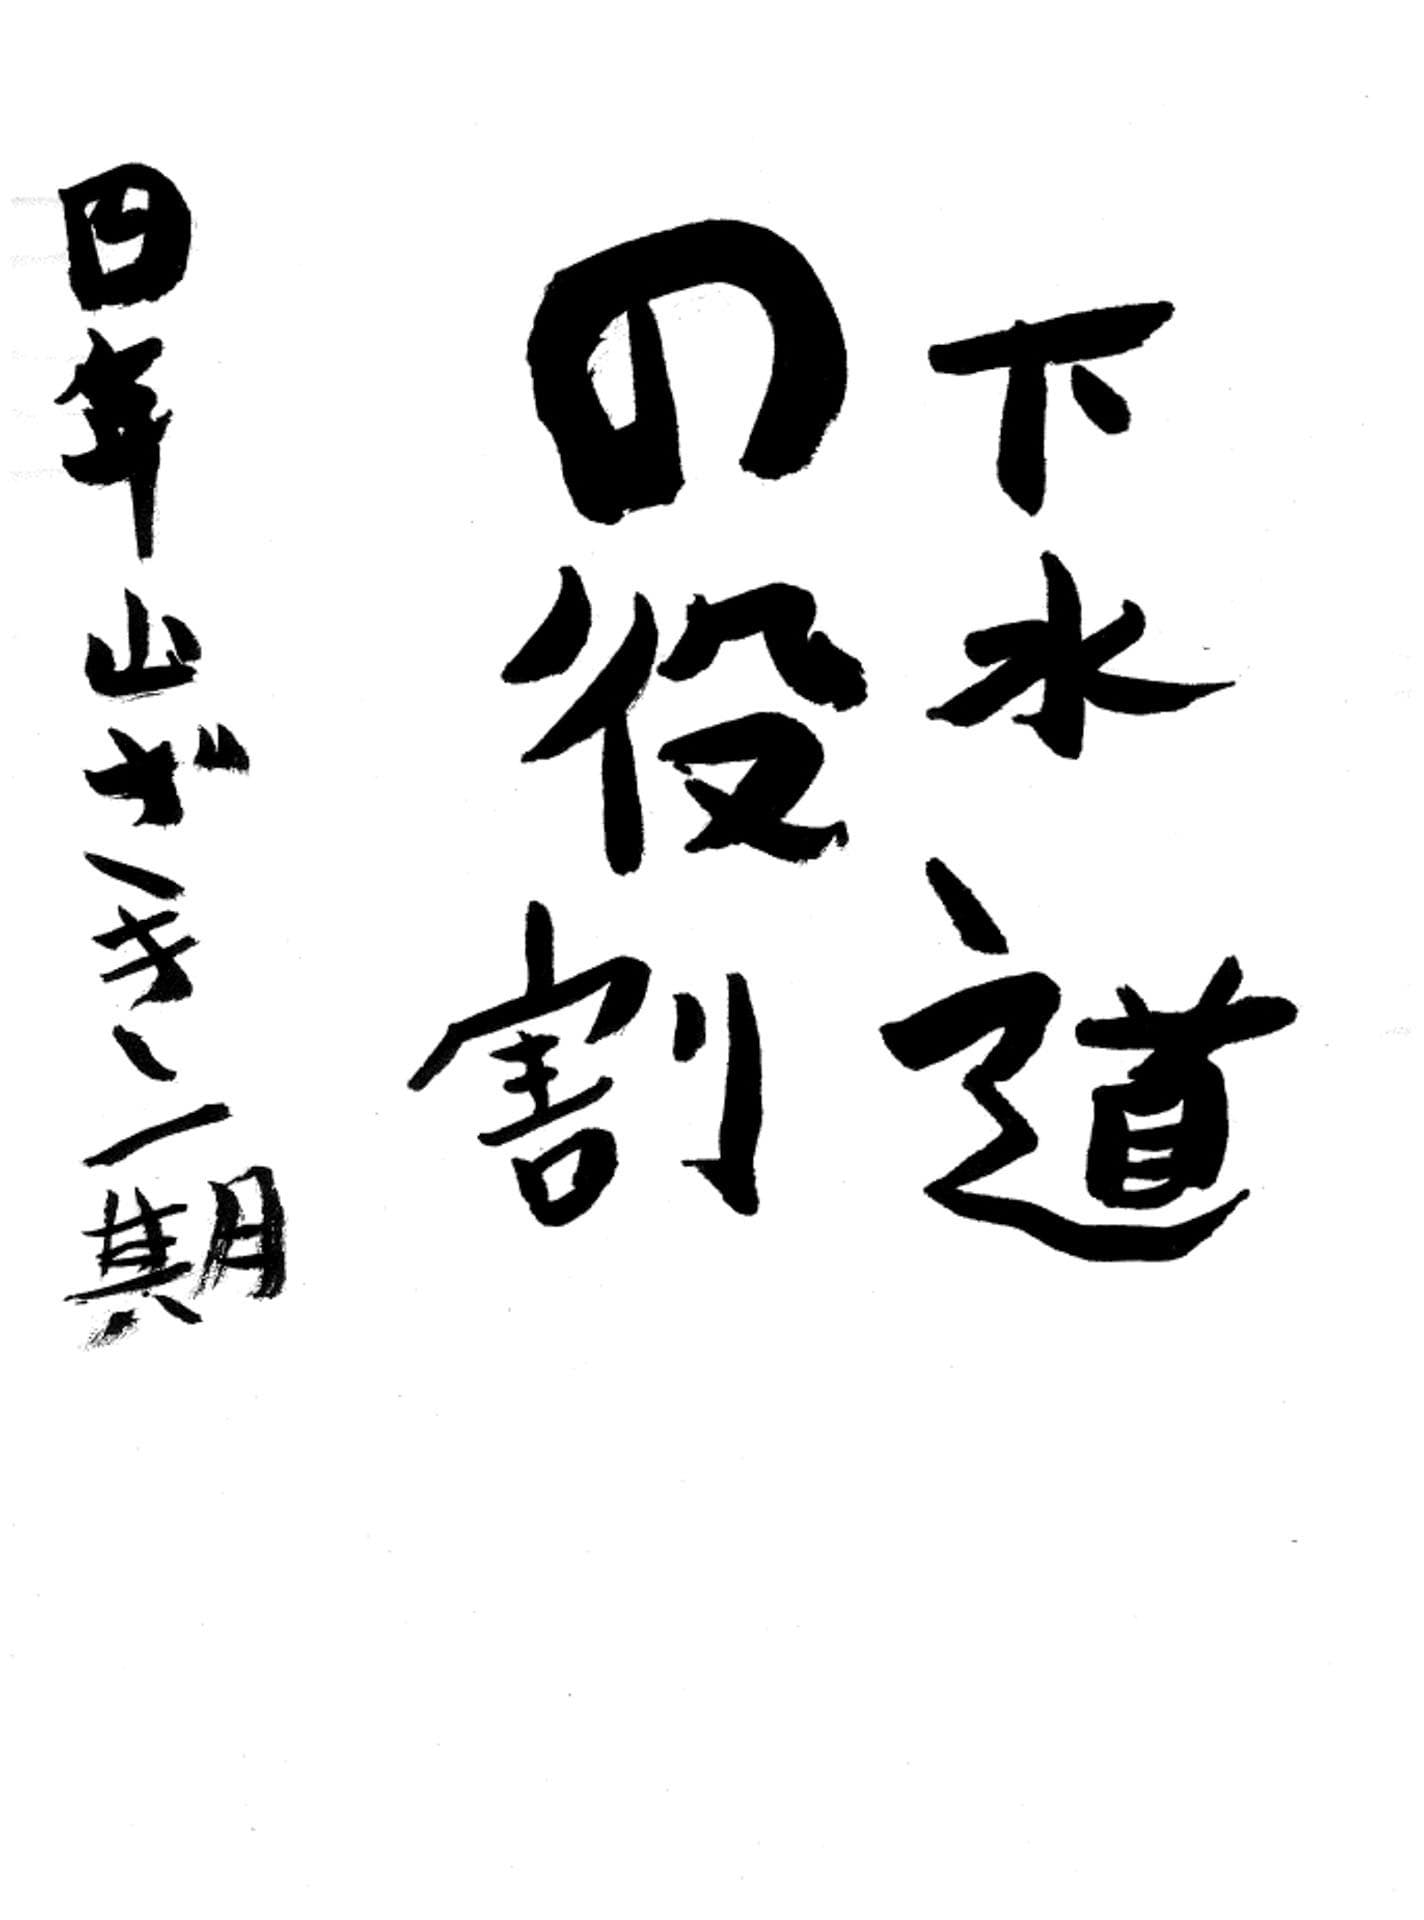 下水道
の役割
四年山ざきこ一期